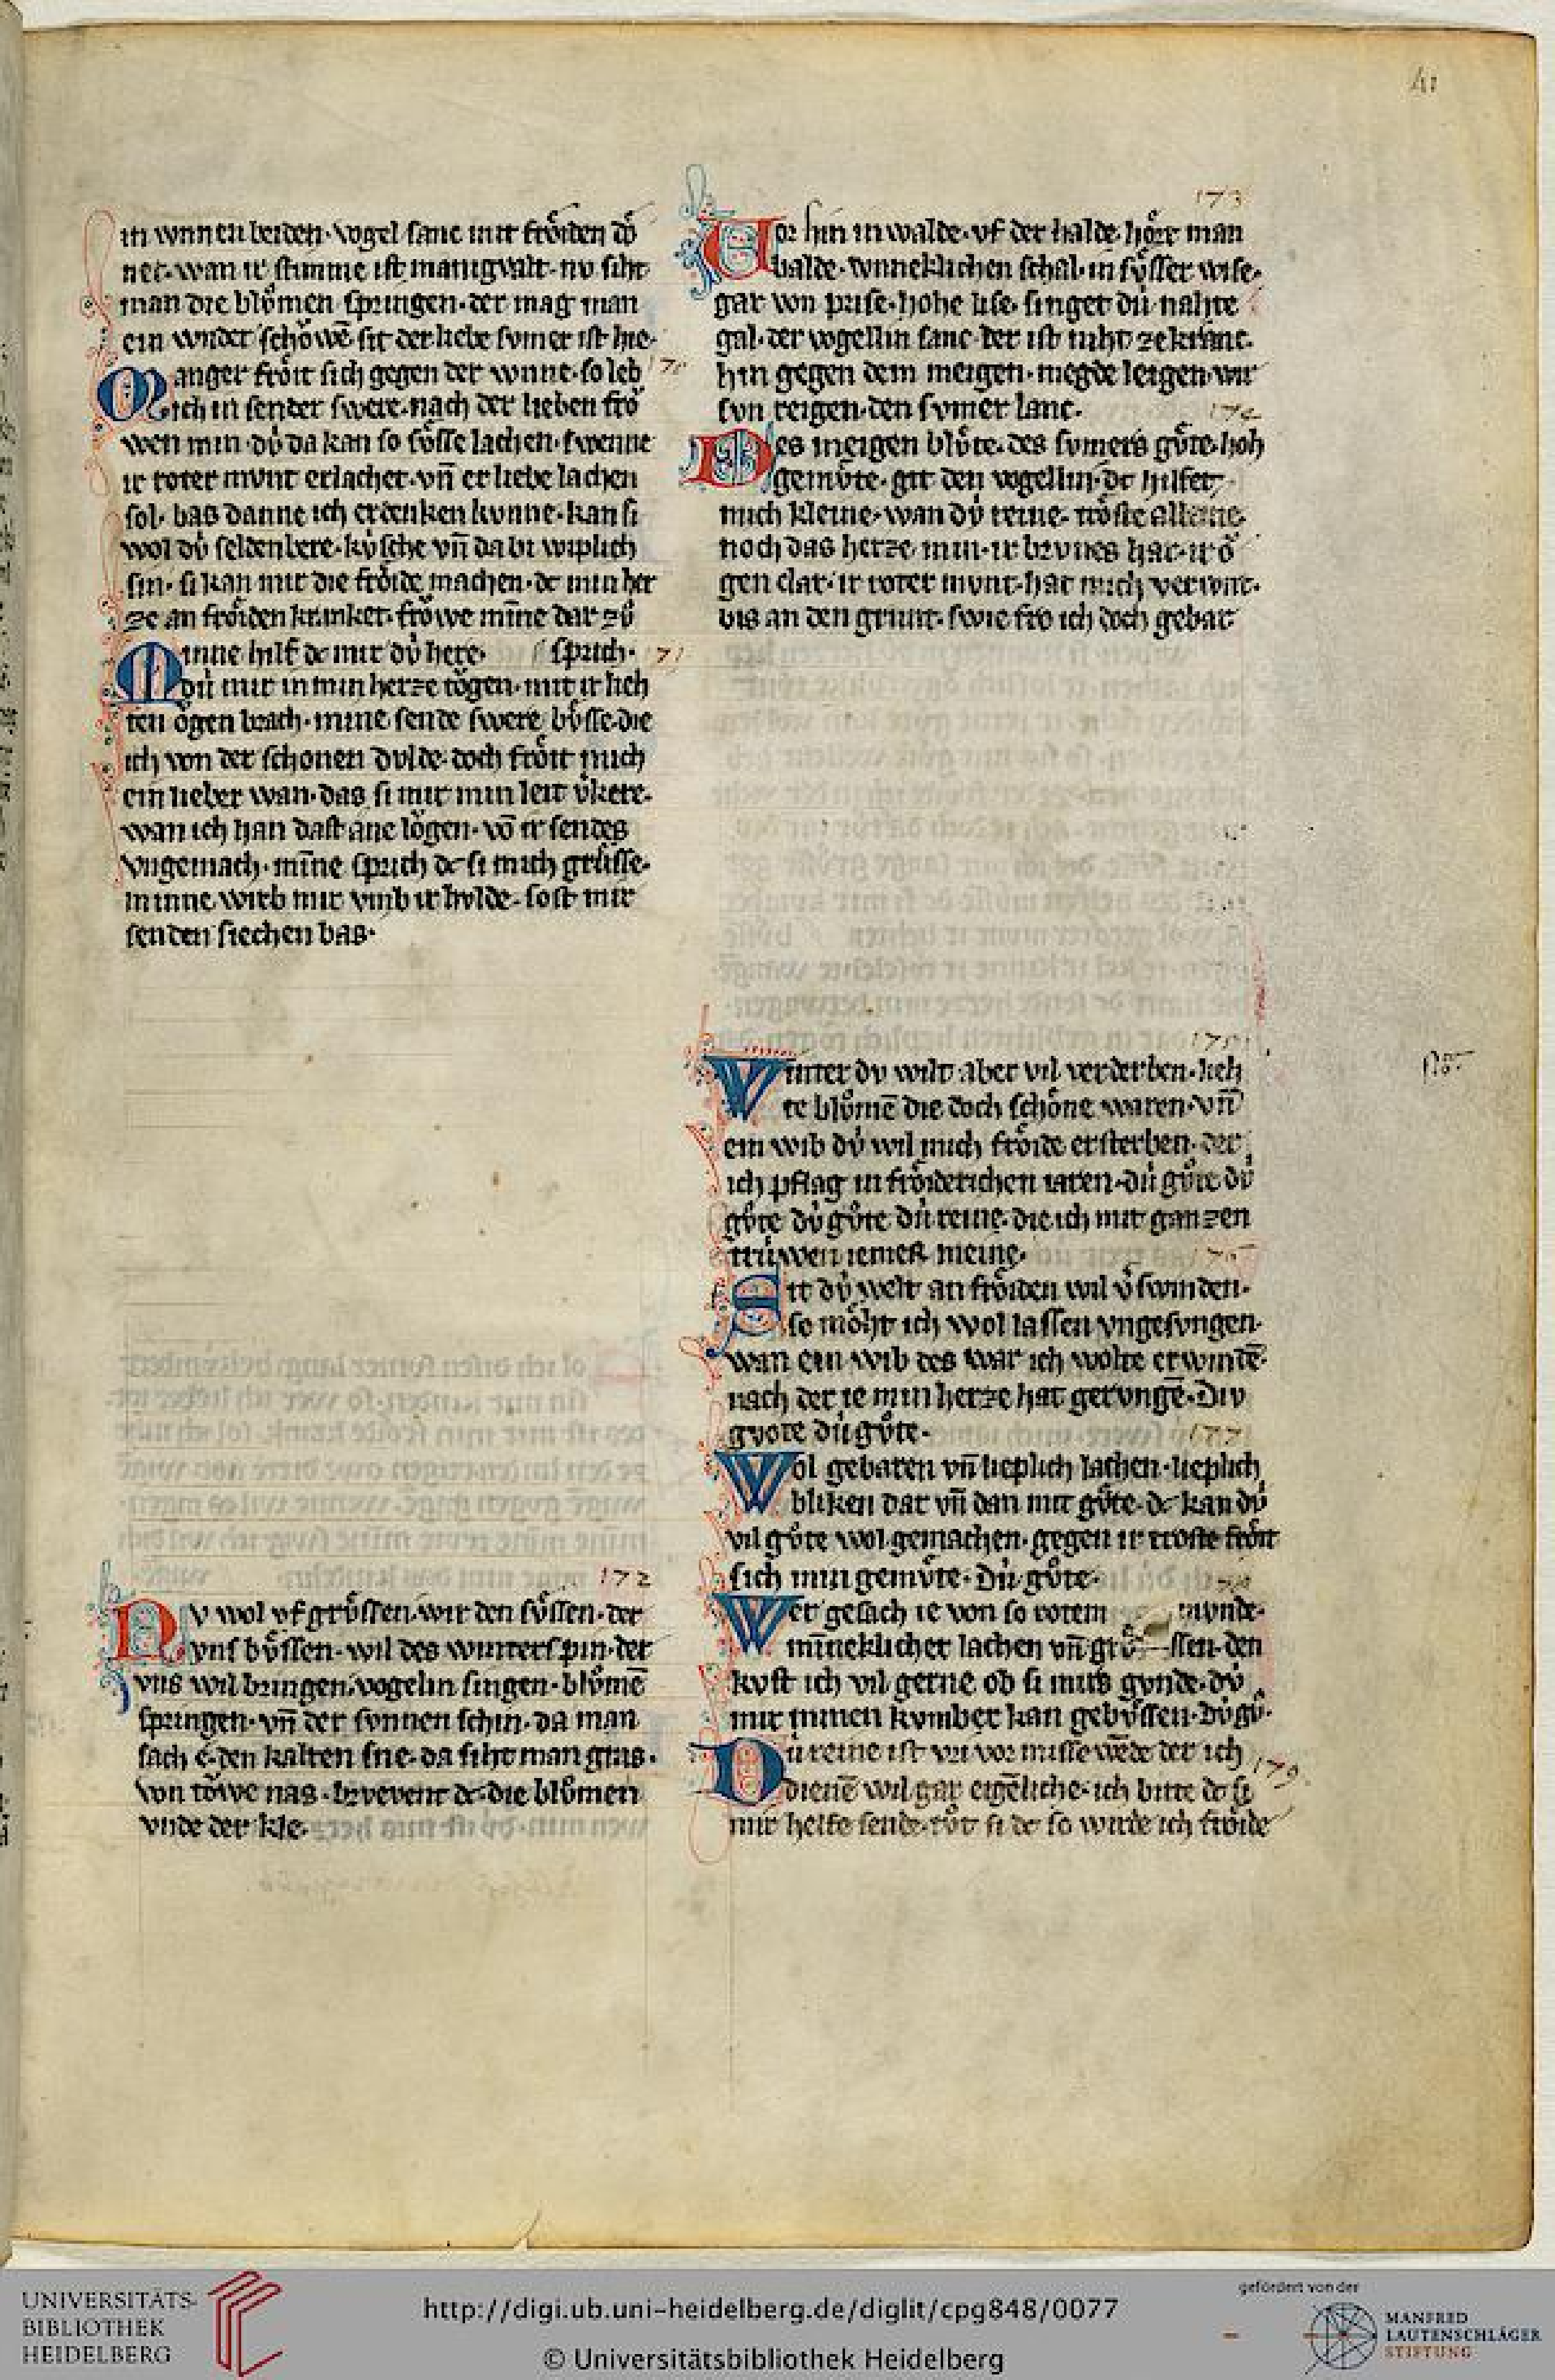 41
in wnnen beiden. vogel sanc mit froͤiden doͤ
net. wan ir stimme ist manigvalt. nv siht
man die blvͦmen springen. der mag man
ein wnder schoͮwē sit der liebe svmer ist hie.
Manger froͤit sich gegen der wnne. so leb
ich in sender swere. nach der lieben froͮ
wen min. dv̍ da kan so svͤsse lachen. swenne
ir roter mvnt erlachet. vn̄ er liebe lachen
sol. bas danne ich erdenken kvnne. kan si
wol dv̍ seldenbere. kv̍sche vn̄ da bi wiplich
sin. si kan mir die froͤide machen. dc min her
ze an froͤiden kranket. froͮwe mīne dar zvͦ
Minne hilf dc mir dv̍ here. sprich.
dv̍ mir in min herze toͮgen. mit ir lieh
ten oͮgen brach. mine sende swere bvͤsse. die
ich von der schonen dvlde. doch froͤit mich
ein lieber wan. das si mir min leit v̓kere.
wan ich han dast ane loͮgen. vō ir sendes
vngemach. mīne sprich dc si mich grv̍sse.
minne wirb mir vmb ir hvlde. sost mir
senden siechen bas.
172
Nv wol vf grvͤssen. wir den svͤssen. der
vns bvͤssen. wil des winters pin. der
vns wil bringen. vogelin singen. blvͦmē
springen. vn̄ der svnnen schin. da man
sach e. den kalten sne. da siht man gras.
von toͮwe nas. brvevent dc. die blvͦmen
vnde der kle.
173
Vor hin in walde. vf der halde. hoͤrt man
balde. wnneklichen schal. in svͤsser wise.
gar von prise. hohe lise. singet dv̍ nahte
gal. der vogellin sanc. der ist niht ze kranc.
hin gegen dem meigen. megde leigen. wir
svn reigen. den svmer lanc.
174
Des meigen blvͤte. des svmers gvͤte. hoh
gemvͤte. git den vogellin. dc hilfet
mich kleine. wan dv̍ reine. troͤste alleine
noch das herze min. ir brvnes har. ir oͮ
gen clar. ir roter mvnt. hat mich verwnt.
bis an den grvnt. swie fro ich doch gebar
175
Winter dv wilt aber vil verderben. lieh
te blvͦmē die doch schoͤne waren. vn̄
ein wib dv̍ wil mich froͤide ersterben. der
ich pflag in froͤiderichen iaren. dv̍ gvͦte dv̍
gvͦte dv̍ gvͦte dv̍ reine. die ich mit ganzen
trv̍wen iemer meine.
176
Sit dv̍ welt an froͤiden wil v̓swinden.
so moͤht ich wol lassen vngesvngen.
wan ein wib des war ich wolte erwindē.
nach der ie min herze hat gervngē. Div
gvote dv̍ gvͦte.
177
Wol gebaren vn̄ lieplich lachen. lieplich
bliken dar vn̄ dan mit gvͤte. dc kan dv̍
vil gvͦte wol gemachen. gegen ir troste froͤit
sich min gemvͤte. Dv̍ gvͦte.
Wer gesach ie von so rotem mvnde.
mīneklicher lachen vn̄ grvͦssen. den
kvst ich vil gerne ob si mirs gvnde. dv̍
mir minen kvmber kan gebvͤssen. Dv̍ gvͦ.
Dv̍ reine ist vri vor missewēde der ich 179
dienē wil gar eigēliche. ich bitte dc si
mir helfe sende. tvͦt si dc so wirde ich froͤide
UNIVERSITÄTS-
BIBLIOTHEK
HEIDELBERG
http://digi.ub.uni-heidelberg.de/diglit/cpg848/0077
© Universitätsbibliothek Heidelberg
gefördert von der
MANFRED
LAUTENSCHLÄGER
STIFTUNG